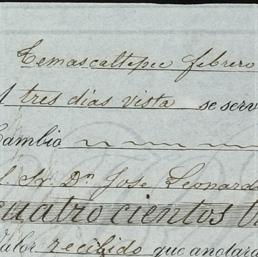 Temascaltepec febrero
A tres dias vista se serv
Cambio
Sr. Dn. Jose Leonard
cuatro cientos t
Valor recibido que anotará